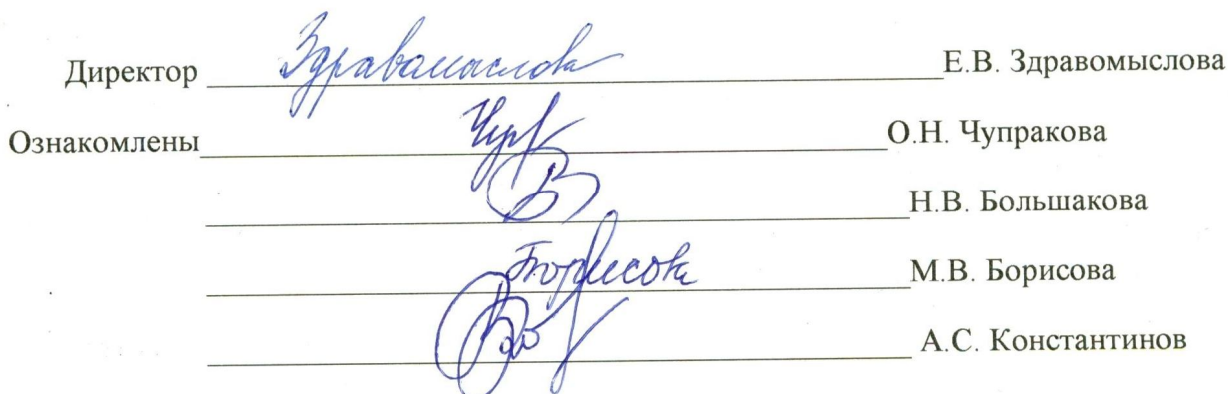 Директор Здравомыслова Е.В. Здравомыслова
Ознакомлены Чупр О.Н. Чупракова
Н.В. Большакова
Борисова М.В. Борисова
А.С. Константинов